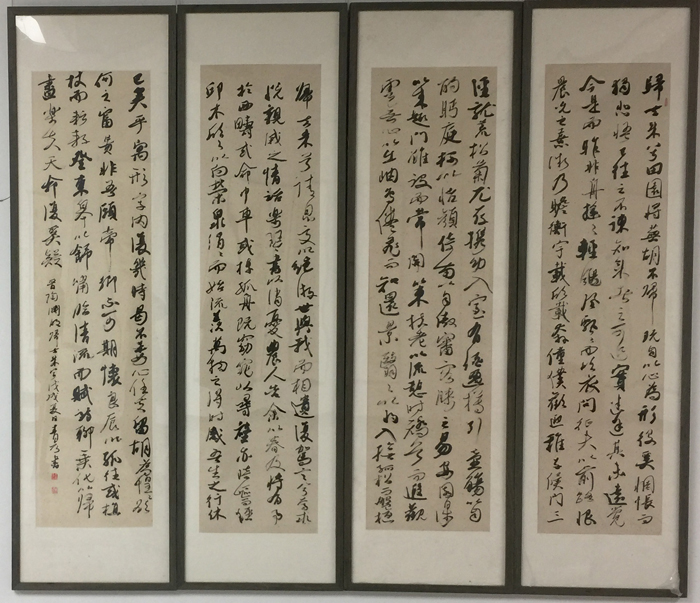 歸去來兮田園將蕪胡不歸既自以心為形役奚惆悵而
獨悲悟已往之不諫知來者之可追實迷途其未遠覺
今是而昨非舟遙遙輕颺風飄飄而吹衣問征夫以前路恨
晨光之熹微乃瞻衡宇載欣載奔僮僕歡迎稚子候門三
徑就荒松菊猶存攜幼入室有酒盈樽引壺觴以自
酌眄庭柯以怡顏倚南窗以寄傲審容膝之易安園日涉
以成趣門雖設而常關策扶老以流憩時矯首而遐觀
雲無心以出岫鳥倦飛而知還景翳翳以將入撫孤松而盤桓
歸去來兮請息交以絕游世與我而相遺復駕言兮焉求
悅親戚之情話樂琴書以消憂農人告余以春及將有事
於西疇或命巾車或棹孤舟既窈窕以尋壑亦崎嶇而經
邱木欣欣以向榮泉涓涓而始流羨萬物之得時感吾生之行休
已矣乎寓形宇內復幾時曷不委心任去留胡為遑遑欲
何之富貴非吾願帝鄉不可期懷良辰以孤往或植
杖而耘耔登東皋以舒嘯臨清流而賦詩聊乘化以歸
盡樂夫天命復奚疑
晉陶淵明歸去來兮戊戌夏日書